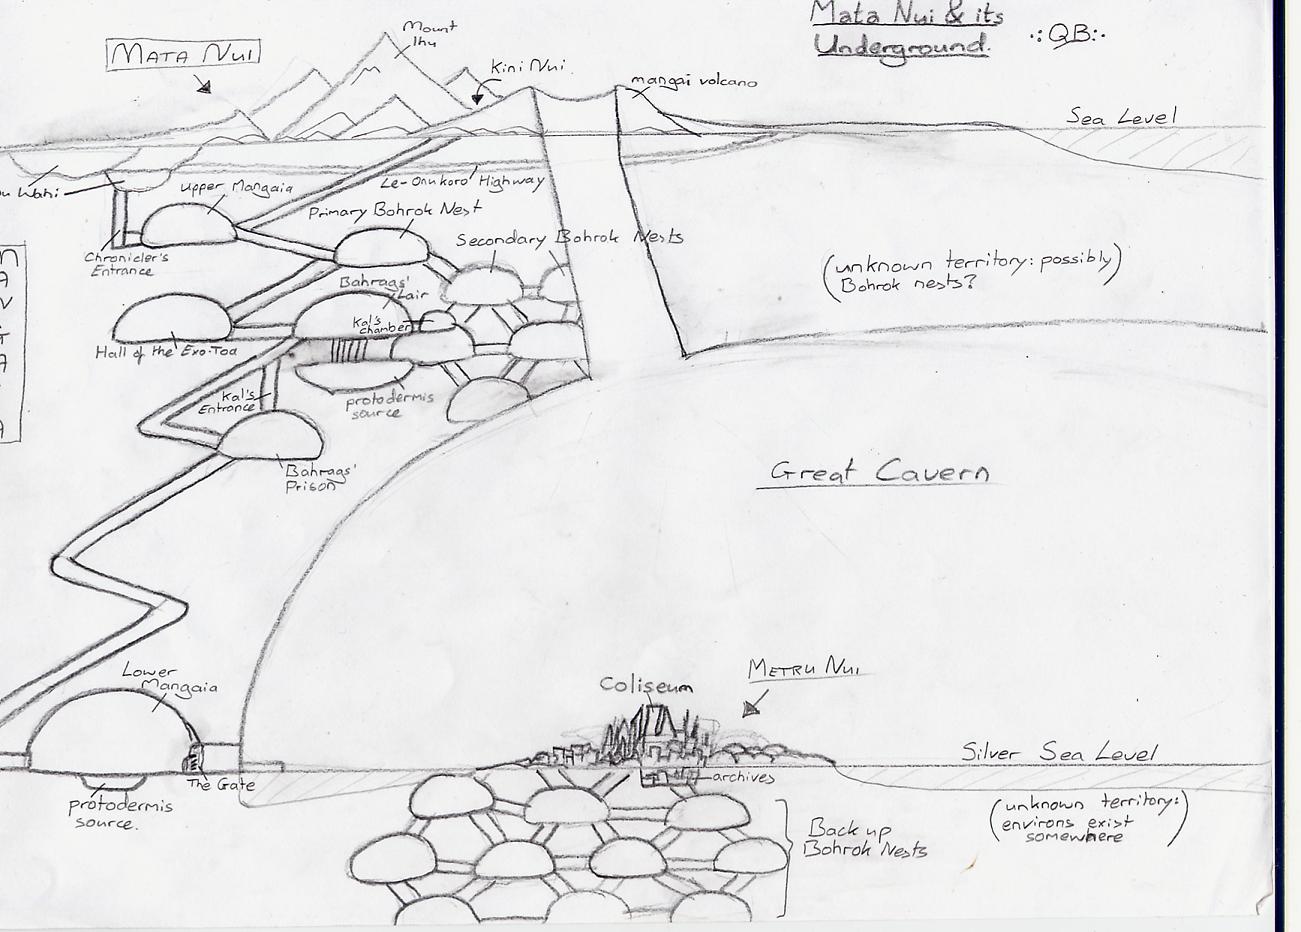 Mata Nui & its
Underground.
.:QB:.
MATA NUI
Mount
Ihu
Kini Nui
mangai volcano
Sea Level
Wahi
Upper Mangaia
Le-Onukoro Highway
Primary Bohrok Nest
Secondary Bohrok Nests
Chronicler's
Entrance
(unknown territory: possibly)
Bohrok nests?
Bahrags'
Lair
Kal's
chamber
Hall of the Exo-Toa
Kal's
Entrance
protodermis
source
Bahrags'
Prison
Great Cavern
Lower
Mangaia
METRU NUI
Coliseum
Silver Sea Level
The Gate
archives
protodermis
source.
(unknown territory:)
environs exist
somewhere
Back up
Bohrok Nests